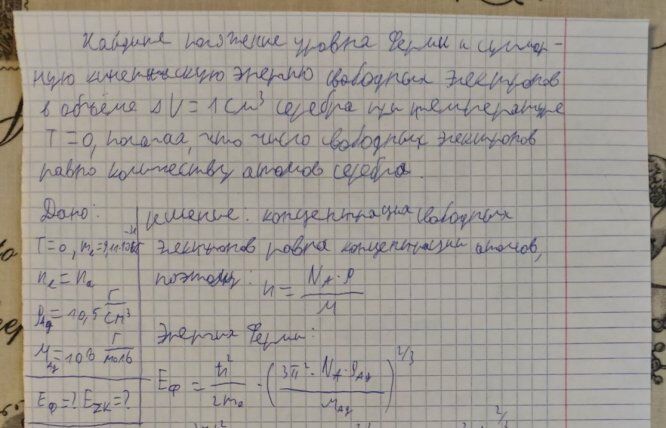 Найдите положение уровня Ферми и суммар-
ную кинетическую энергию свободных электронов
в объёме ΔV = 1 см³ серебра при температуре
T = 0, полагая, что число свободных электронов
равно количеству атомов серебра.
Дано:
T = 0, mₑ = 9,11·10⁻³¹ кг
nₑ = nₐ
ρ_Ag = 10,5 г/см³
M_Ag = 108 г/моль
E_Ф = ? E_ΣК = ?
Решение: концентрация свободных
электронов равна концентрации атомов,
поэтому: n = N_A·ρ/M
Энергия Ферми:
E_Ф = ħ²/2m₀ · (3π²·N_A·ρ_Ag/M_Ag)^2/3